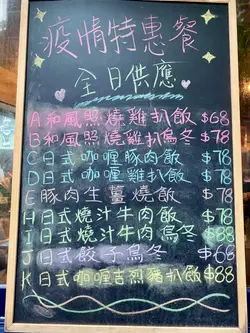 疫情特惠餐
全日供應
A和風照燒雞扒飯 $68
B和風照燒雞扒烏冬 $78
C日式咖喱豚肉飯 $78
D日式咖喱雞扒飯 $78
E豚肉生薑燒飯 $78
H日式燒汁牛肉飯 $78
I日式燒汁牛肉烏冬 $88
J日式餃子烏冬 $68
K日式咖喱吉烈豬扒飯 $88